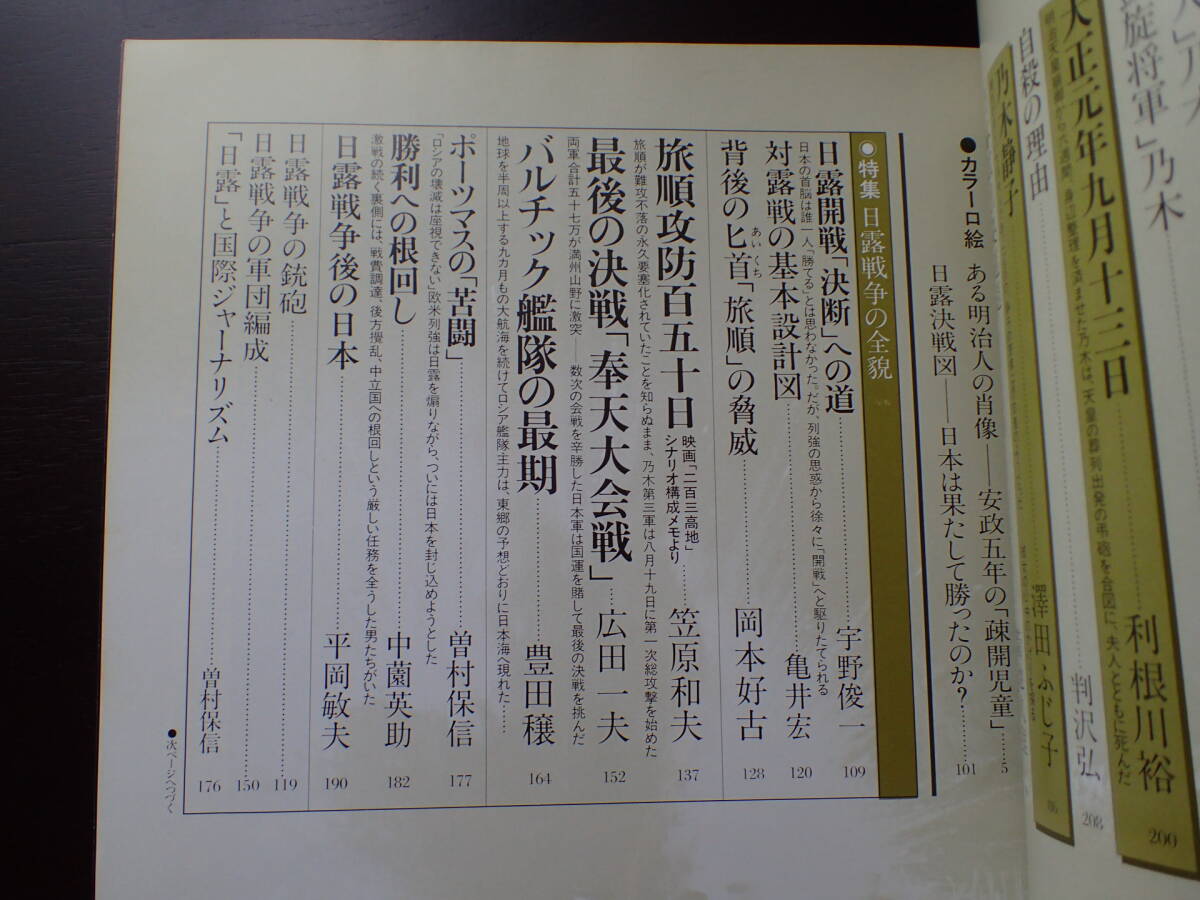 人」乃木
旋将軍」乃木
大正元年九月十三日
利根川裕
200
自殺の理由
判沢弘
208
乃木静子
澤田ふじ子
●カラー口絵
ある明治人の肖像——安政五年の「疎開児童」
5
日露決戦図——日本は果たして勝ったのか?
101
◉特集 日露戦争の全貌
日露開戦「決断」への道
宇野俊一
109
日本の首脳は誰一人「勝てる」とは思わなかった。だが、列強の思惑から徐々に「開戦」へと駆りたてられる
対露戦の基本設計図
亀井宏
120
背後の匕首「旅順」の脅威
あいくち
岡本好古
128
旅順攻防百五十日
映画「二百三高地」
シナリオ構成メモより
笠原和夫
137
旅順が難攻不落の永久要塞化されていたことを知らぬまま、乃木第三軍は八月十九日に第一次総攻撃を始めた
最後の決戦「奉天大会戦」
広田一夫
152
両軍合計五十七万が満州山野に激突——数次の会戦を辛勝した日本軍は国運を賭して最後の決戦を挑んだ
バルチック艦隊の最期
豊田穣
164
地球を半周以上する九カ月もの大航海を続けてロシア艦隊主力は、東郷の予想どおりに日本海へ現れた……
ポーツマスの「苦闘」
曽村保信
177
「ロシアの壊滅は座視できない」欧米列強は日露を煽りながら、ついには日本を封じ込めようとした
勝利への根回し
中薗英助
182
激戦の続く裏側には、戦費調達、後方攪乱、中立国への根回しという厳しい任務を全うした男たちがいた
日露戦争後の日本
平岡敏夫
190
日露戦争の銃砲
119
日露戦争の軍団編成
150
「日露」と国際ジャーナリズム
曽村保信
176
●次ページへつづく